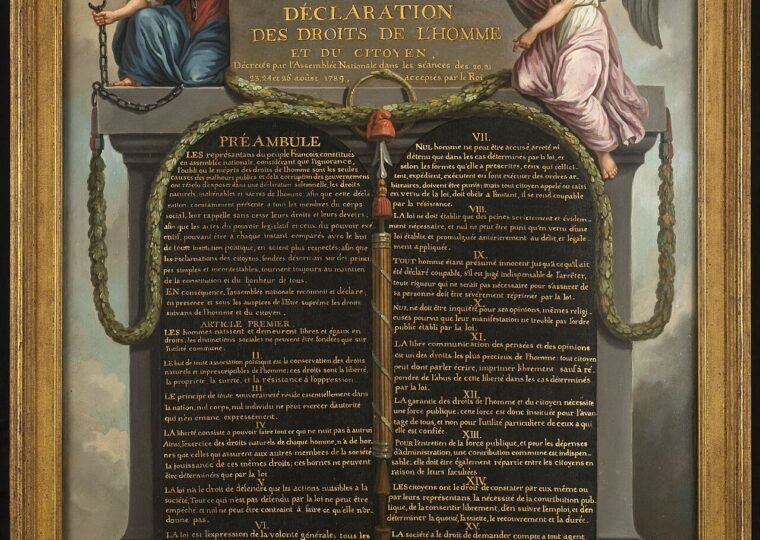 DÉCLARATION
DES DROITS DE L'HOMME
ET DU CITOYEN,
Décretés par l'Assemblée Nationale dans les séances des 20, 21
23, 24 et 26 aoûst 1789, acceptés par le Roi
PRÉAMBULE
LES représantans du peuple Francois, constitués
en assemblée nationale, considérant que l'ignorance,
l'oubli ou le mépris des droits de l'homme sont les seules
causes des malheurs publics et de la corruption des gouvernemens
ont résolu d'exposer dans une déclaration solemnelle, les droits
naturels, inaliénables et sacrés de l'homme; afin que cette décla
ration, constamment présente a tous les membres du corps
social, leur rappelle sans cesse leurs droits et leurs devoirs;
afin que les actes du pouvoir legislatif et ceux du pouvoir exé
cutif, pouvant être à chaque instant comparés avec le but
de toute institution politique, en soient plus respectés; afin que
les réclamations des citoyens, fondées désormais sur des princi
pes simples et incontestables, tournent toujours au maintien
de la constitution et du bonheur de tous.
EN conséquence, l'assemblée nationale reconnoit et déclare,
en présence et sous les auspices de l'Etre suprême les droits
suivans de l'homme et du citoyen.
ARTICLE PREMIER.
LES hommes naissent et demeurent libres et égaux en
droits, les distinctions sociales ne peuvent être fondées que sur
l'utilité commune.
II.
LE but de toute association politique est la conservation des droits
naturels et inprescriptibles de l'homme; ces droits sont la liberté,
la propriété, la sureté, et la résistance à l'oppression.
III.
LE principe de toute souveraineté réside essentiellement dans
la nation, nul corps, nul individu ne peut exercer d'autorité
qui n'en émane expressément.
IV.
LA liberté consiste a pouvoir faire tout ce qui ne nuit pas à autrui
Ainsi, l'exercice des droits naturels de chaque homme, n'a de bor
nes que celles qui assurent aux autres membres de la société
la jouissance de ces mêmes droits; ces bornes ne peuvent
être déterminées que par la loi
V.
LA loi n'a le droit de défendre que les actions nuisibles à la
société. Tout ce qui n'est pas défendu par la loi ne peut être
empêché, et nul ne peut être contraint à faire ce qu'elle n'or-
donne pas.
VI.
LA loi est l'expression de la volonté générale; tous les
VII.
NUL homme ne peut être accusé, arreté ni
détenu que dans les cas déterminés par la loi, et
selon les formes qu'elle a prescrites, ceux qui sollici-
tent, expédient, exécutent ou font exécuter des ordres ar-
bitraires, doivent être punis; mais tout citoyen appelé ou saisi
en vertu de la loi, doit obéir a l'instant, il se rend coupable
par la résistance.
VIII.
LA loi ne doit établir que des peines strictement et évidem-
ment nécessaire, et nul ne peut être puni qu'en vertu d'une
loi établie et promulguée antérieurement au délit, et légale-
ment appliquée.
IX.
TOUT homme étant présumé innocent jusqu'à ce qu'il ait
été déclaré coupable, s'il est jugé indispensable de l'arrêter,
toute rigueur qui ne serait pas nécessaire pour s'assurer de
sa personne doit être sévèrement réprimée par la loi.
X.
NUL ne doit être inquiété pour ses opinions, mêmes religi-
euses pourvu que leur manifestation ne trouble pas l'ordre
public établi par la loi.
XI.
LA libre communication des pensées et des opinions
est un des droits les plus precieux de l'homme; tout citoyen
peut donc parler écrire, imprimer librement: sauf à ré-
pondre de l'abus de cette liberté dans les cas déterminés
par la loi.
XII.
LA garantie des droits de l'homme et du citoyen nécessite
une force publique; cette force est donc instituée pour l'avan-
tage de tous, et non pour l'utilité particuliere de ceux a qui
elle est confiée.
XIII.
POUR l'entretien de la force publique, et pour les dépenses
d'administration, une contribution commune est indispen-
sable; elle doit être également répartie entre les citoyens en
raison de leurs facultées
XIV.
LES citoyens ont le droit de constater par eux même ou
par leurs représentans, la nécessité de la contribution pub-
lique, de la consentir librement, d'en suivre l'emploi, et d'en
déterminer la quotité, l'assiette, le recouvrement et la durée.
XV.
LA société a le droit de demander compte a tout agent